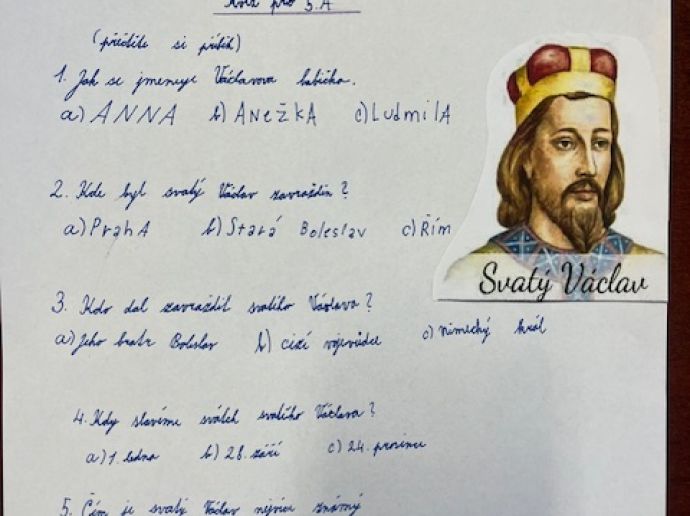 Kvíz pro 5.A
(přečtěte si příběh)
1. Jak se jmenuje Václavova babička.
a) ANNA b) ANEžKA c) LudmilA
2. Kde byl svatý Václav zavražděn?
a) PrahA b) Stará Boleslav c) Řím
3. Kdo dal zavraždit svatého Václava?
a) Jeho bratr Boleslav b) cizí vojevůdce c) německý král
4. Kdy slavíme svátek svatého Václava?
a) 1. ledna b) 28. září c) 24. prosince
5. Čím je svatý Václav nejvíce známý
Svatý Václav